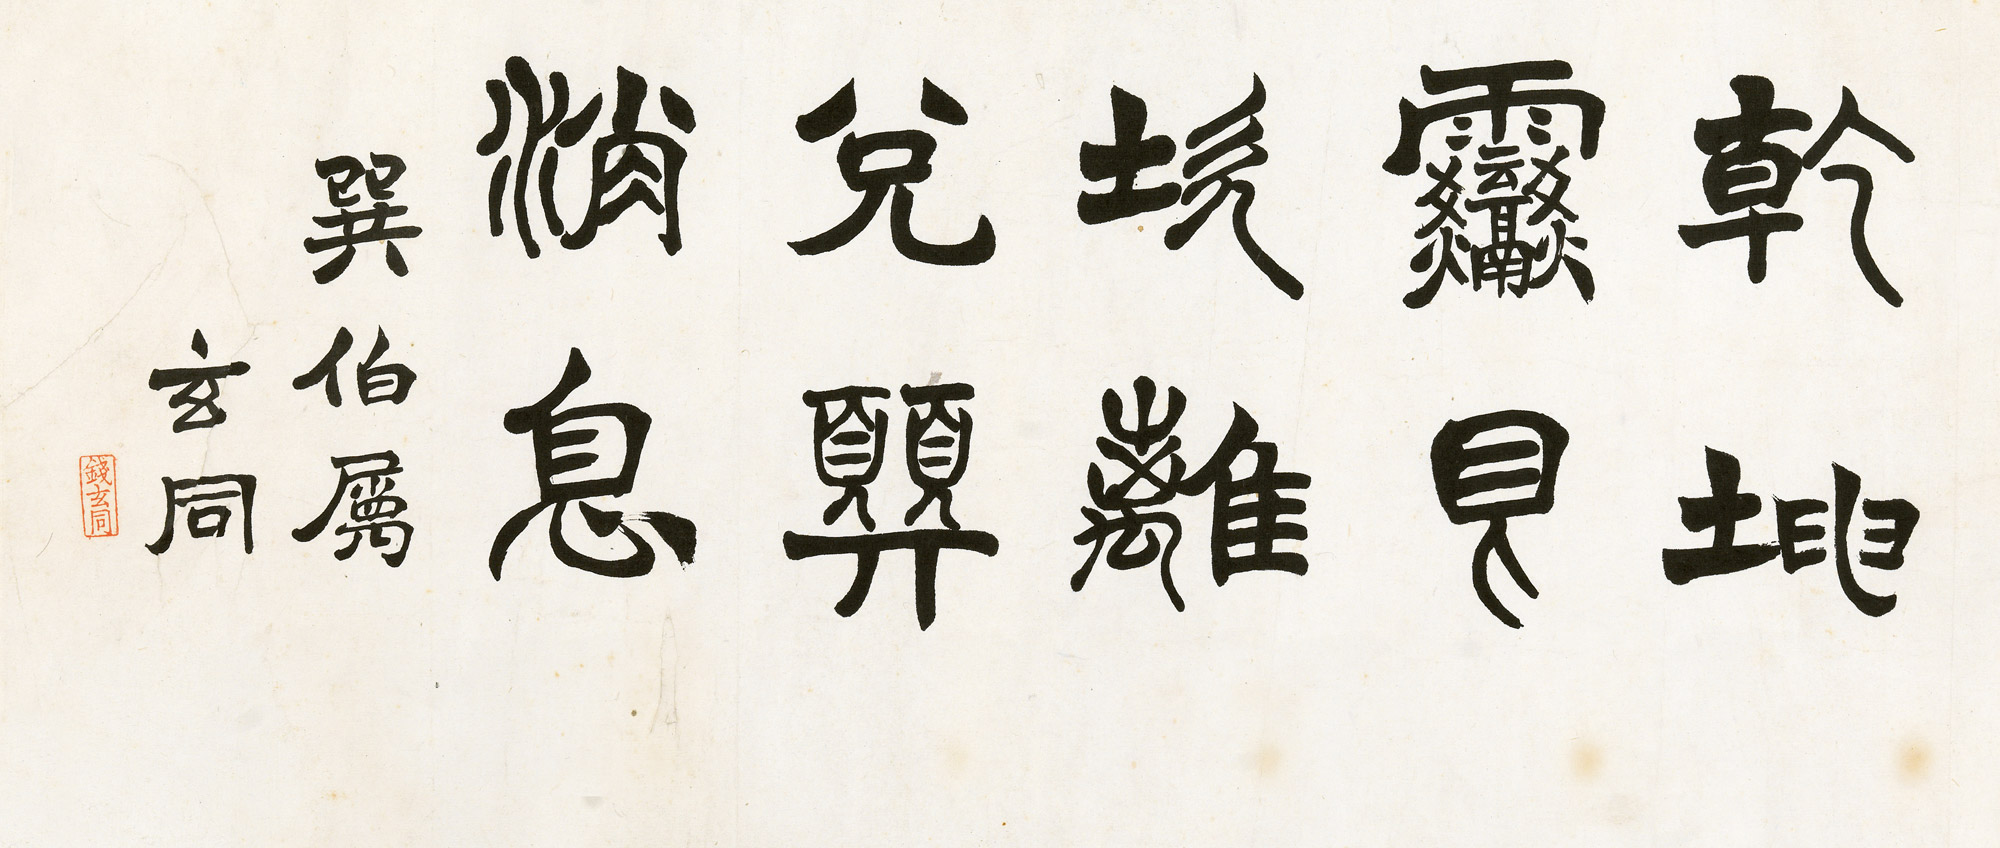 乾坤
震艮
坎離
兌顨
消息
巽伯屬
玄同
錢玄同